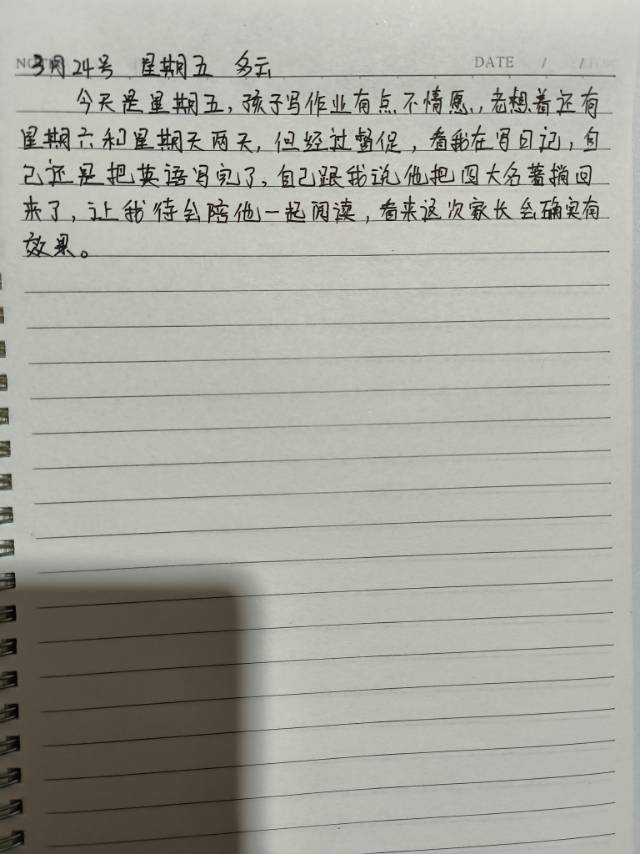 3月24号 星期五 多云
DATE / /
今天是星期五,孩子写作业有点不情愿,老想着还有
星期六和星期天两天,但经过督促,看我在写日记,自
己还是把英语写完了,自己跟我说他把四大名著捎回
来了,让我待会陪他一起阅读,看来这次家长会确实有
效果。